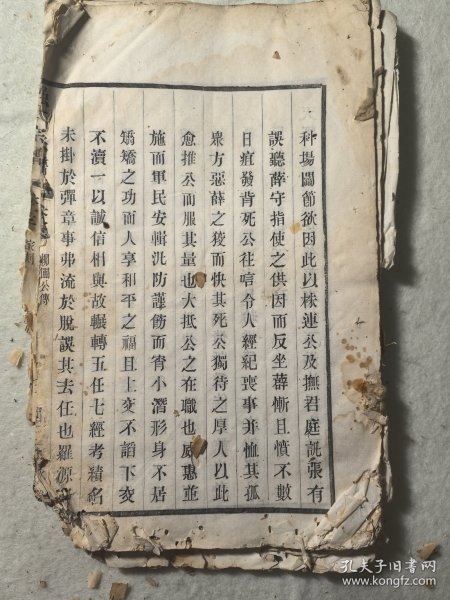 科場關節欲因此以株連公及撫君庭訊張有
誤聽薛守指使之供因而反坐薛慚且憤不數
日疽發背死公往唁令人經紀喪事并恤其孤
衆方惡薛之稜而快其死公獨待之厚人以此
愈推公而服其量也大抵公之在職也威惠並
施而軍民安輯汛防謹飭而宵小潛形身不居
矯矯之功而人享和平之福且上交不諂下交
不瀆一以誠信相與故輾轉五任七經考績名
未掛於彈章事弗流於脫誤其去任也羅源
公傳
孔夫子旧书网
www.kongfz.com